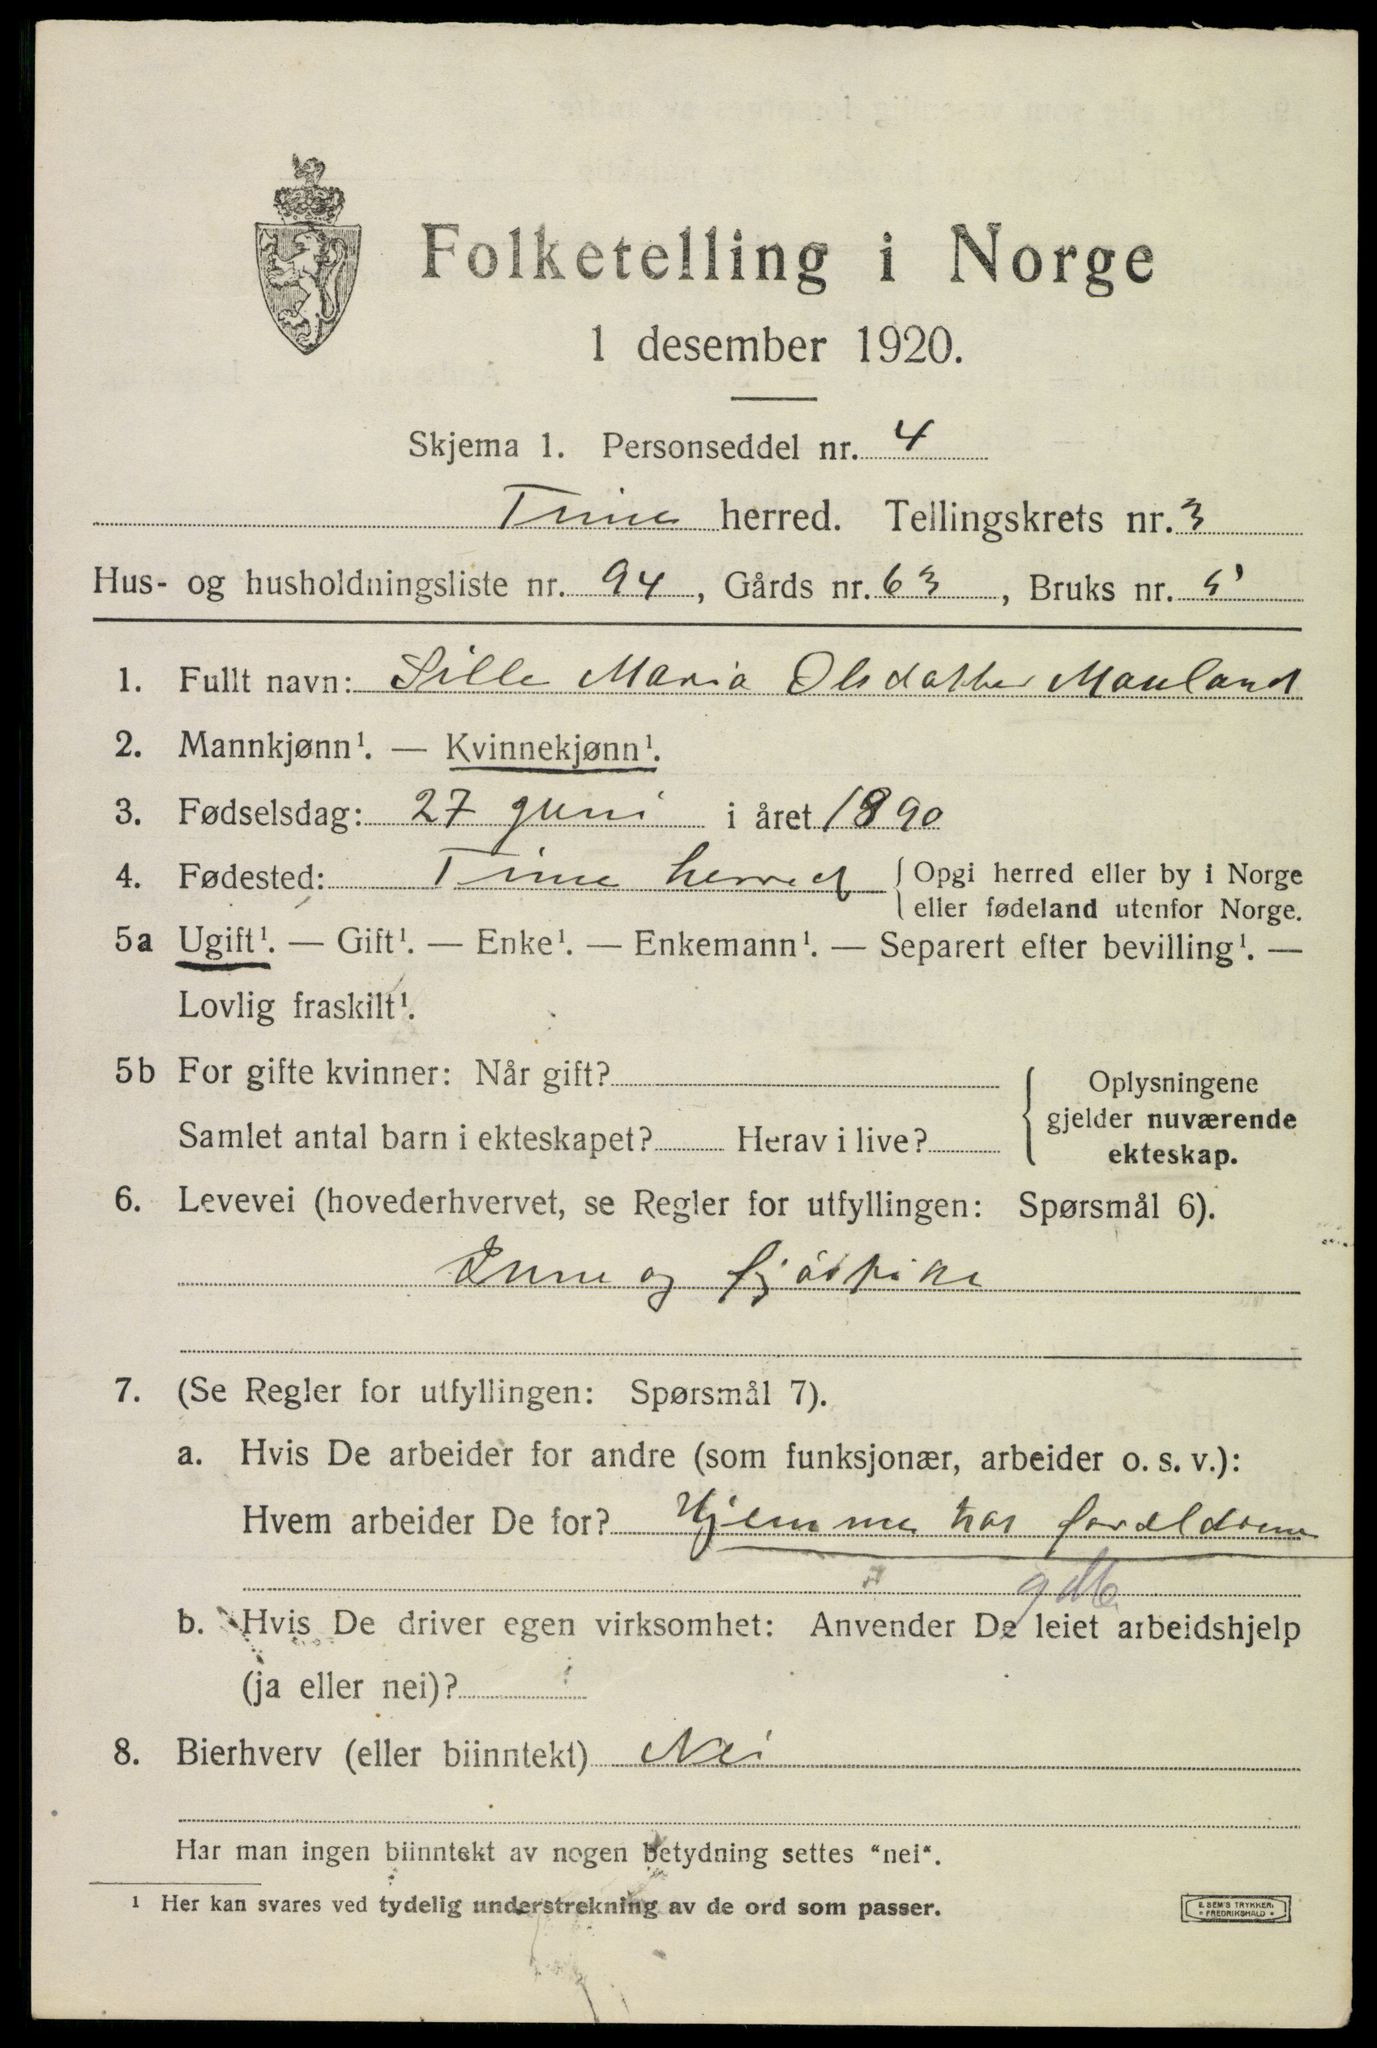 Folketelling i Norge
1 desember 1920.
Skjema 1. Personseddel nr. 4
Time herred. Tellingskrets nr. 3
Hus- og husholdningsliste nr. 94, Gårds nr. 63, Bruks nr. 5
1. Fullt navn: Sille Maria Olsdatter Mauland
2. Mannkjønn¹. — Kvinnekjønn¹.
3. Fødselsdag: 27 juni i året 1890
4. Fødested: Time herred { Opgi herred eller by i Norge
eller fødeland utenfor Norge.
5a Ugift¹. — Gift¹. — Enke¹. — Enkemann¹. — Separert efter bevilling¹. —
Lovlig fraskilt¹.
5b For gifte kvinner: Når gift? { Oplysningene
gjelder nuværende
Samlet antal barn i ekteskapet? Herav i live?
ekteskap.
6. Levevei (hovederhvervet, se Regler for utfyllingen: Spørsmål 6).
Inne og fjøspike
7. (Se Regler for utfyllingen: Spørsmål 7).
a. Hvis De arbeider for andre (som funksjonær, arbeider o. s. v.):
Hvem arbeider De for? Hjemme hos foreldrene
b. Hvis De driver egen virksomhet: Anvender De leiet arbeidshjelp
(ja eller nei)?
8. Bierhverv (eller biinntekt) Nei
Har man ingen biinntekt av nogen betydning settes "nei".
¹ Her kan svares ved tydelig understrekning av de ord som passer.
E. SEM'S TRYKKERI
* FREDRIKSHALD *